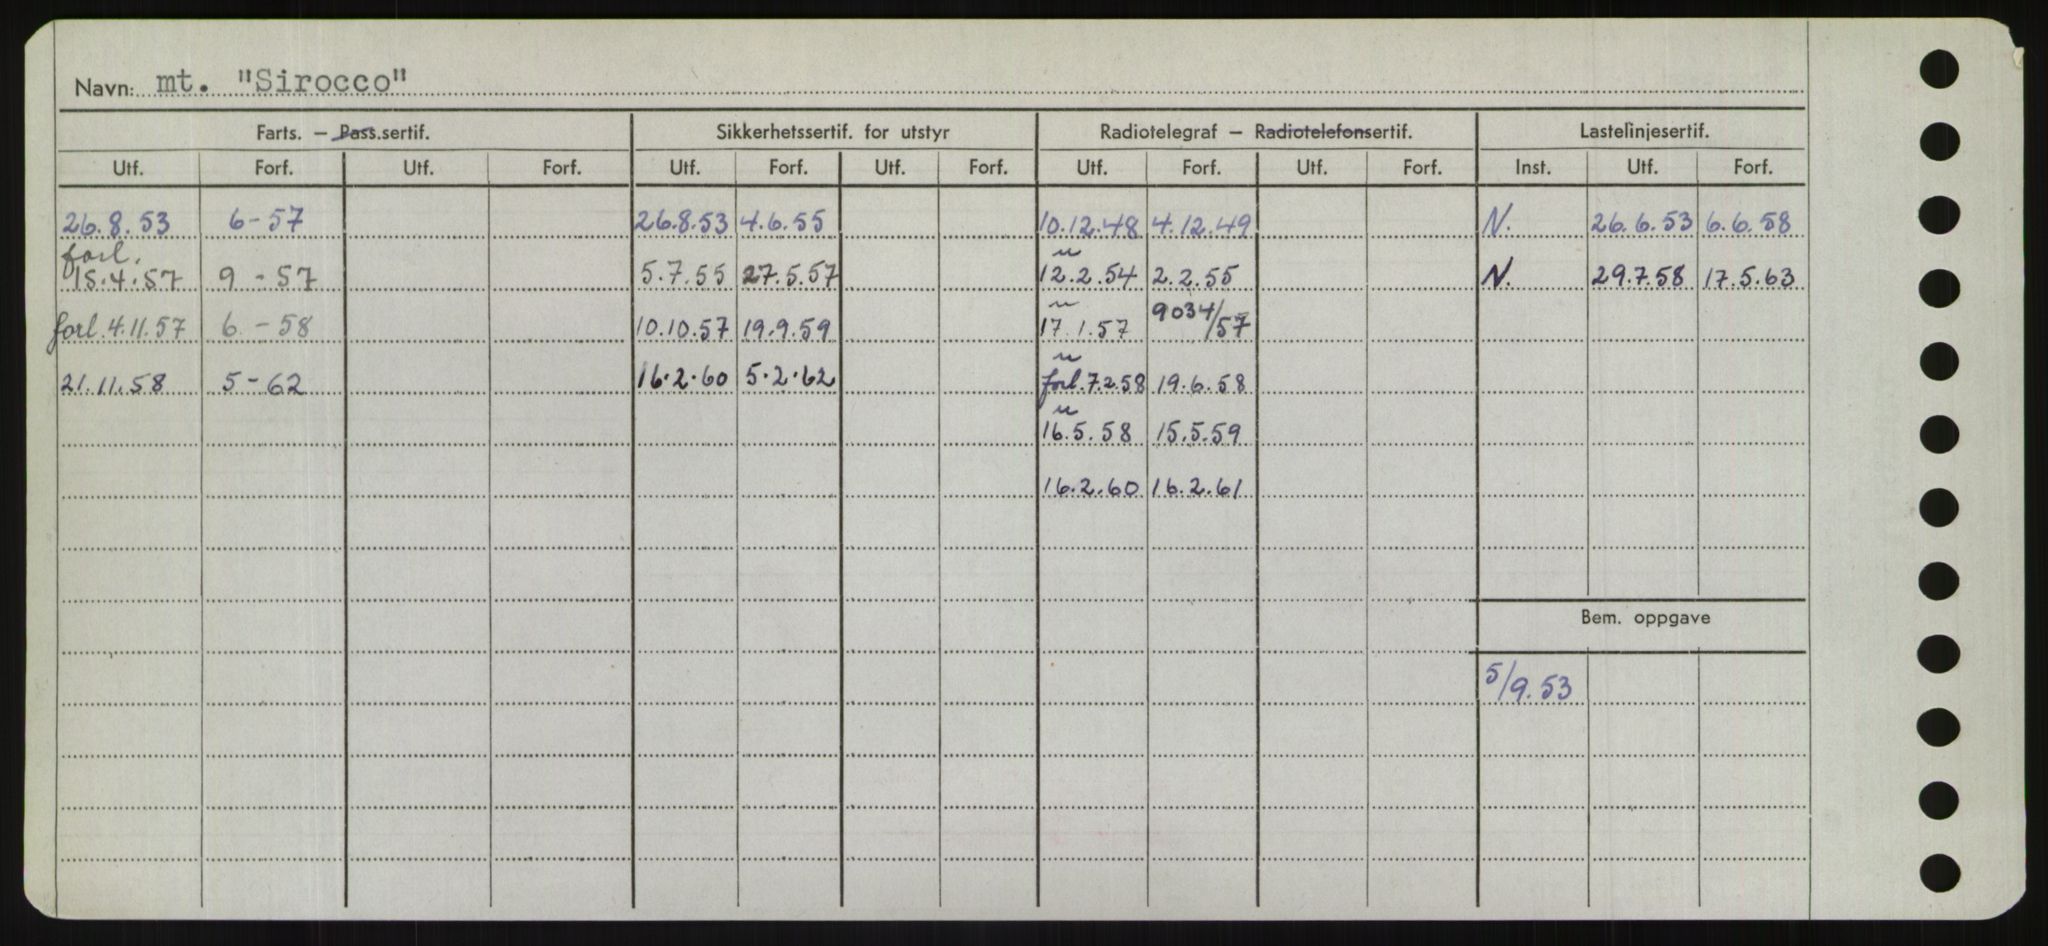 Navn: mt. "Sirocco"
Farts. — Pass.sertif. Sikkerhetssertif. for utstyr Radiotelegraf — Radiotelefonsertif. Lastelinjesertif.
Utf. Forf. Utf. Forf. Utf. Forf. Utf. Forf. Utf. Forf. Utf. Forf. Inst. Utf. Forf.
26.8.53 6-57 26.8.53 4.6.55 10.12.48 4.12.49 N. 26.6.53 6.6.58
forl.
15.4.57 9-57 5.7.55 27.5.57 12.2.54 2.2.55 N. 29.7.58 17.5.63
forl.4.11.57 6-58 10.10.57 19.9.59 17.1.57 9034/57
21.11.58 5-62 16.2.60 5.2.62 forl.7.2.58 19.6.58
16.5.58 15.5.59
16.2.60 16.2.61
Bem. oppgave
5/9.53